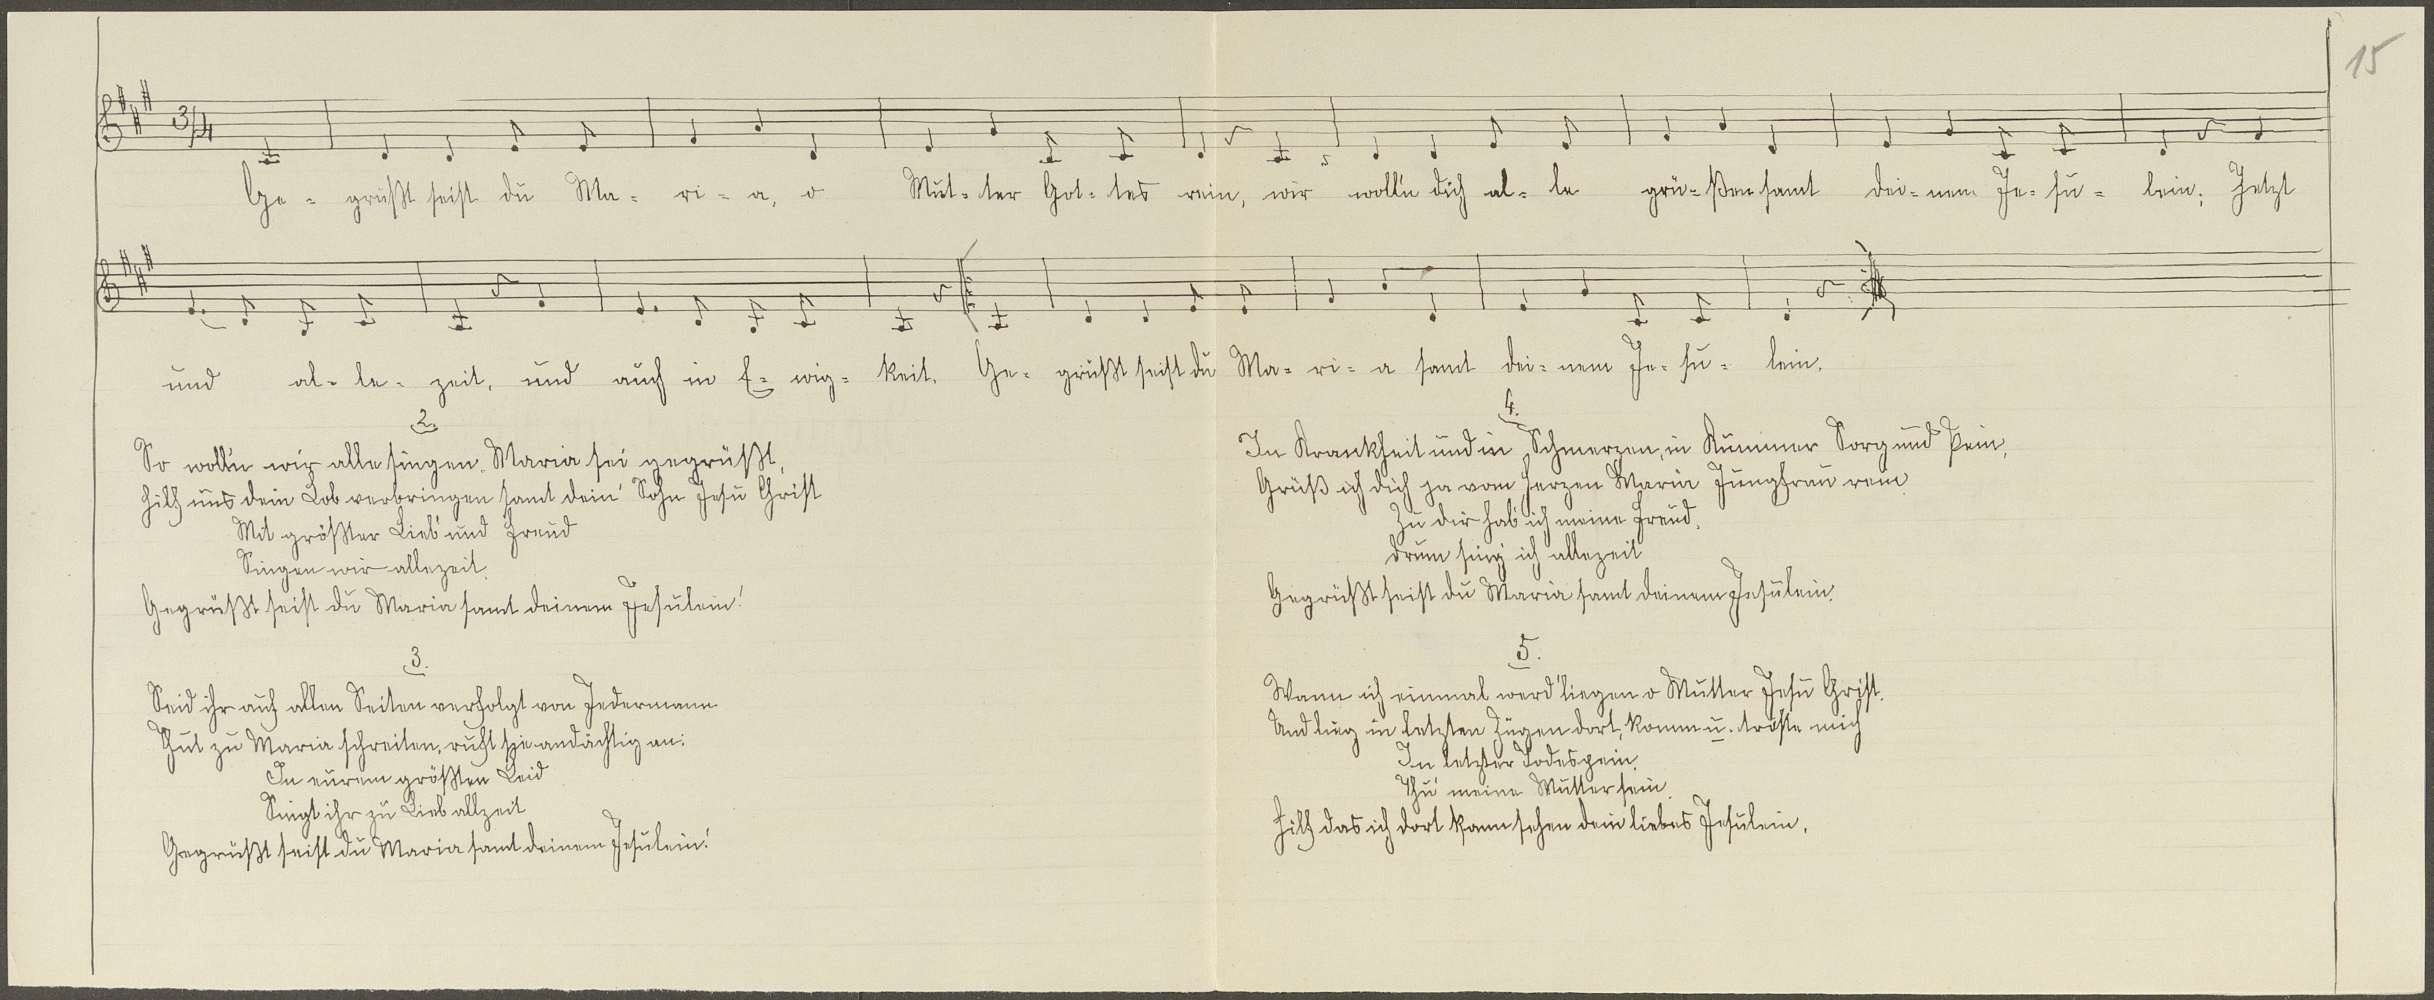 15
3/4
Ge - grüßt seist du Ma - ri - a, o Mut - ter Got - tes rein, wir woll'n dich al - le grü - ßen samt dei - nem Je - su - lein; Jetzt
und al - le - zeit, und auch in E - wig - keit. Ge - grüßt seist du Ma - ri - a samt dei - nem Je - su - lein.
2.
So woll'n wir alle singen, Maria sei gegrüßt,
hilf uns dein Lob verbringen samt dein' Sohn Jesu Christ
Mit größter Lieb' und Freud
Singen wir allezeit.
Gegrüßt seist du Maria samt deinem Jesulein!
3.
Seid ihr auf allen Seiten verfolgt von Jedermann
Thut zu Maria schreiten, ruft sie andächtig an:
In eurem größten Leid
Singt ihr zu Lieb allzeit
Gegrüßt seist du Maria samt deinem Jesulein!
4.
In Krankheit und in Schmerzen, in Kummer Sorg und Pein,
Grüß ich dich ja vom Herzen Maria Jungfrau rein
Zu dir hab' ich meine Freud,
drum sing ich allezeit
Gegrüßt seist du Maria samt deinem Jesulein.
5.
Wann ich einmal werd' liegen o Mutter Jesu Christ.
Und lieg in letzten Zügen dort, komm u. tröste mich
In letzter Todespein,
Thu' meine Mutter sein.
Hilf das ich dort kann sehen dein liebes Jesulein.